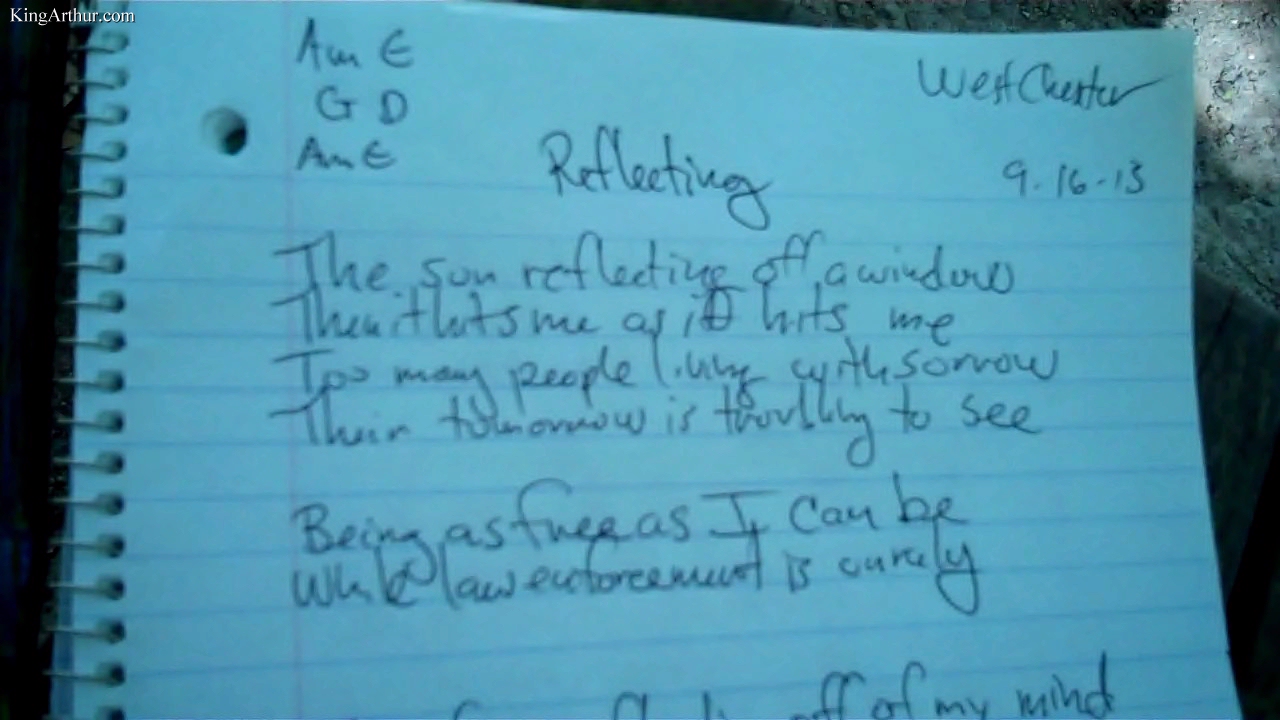 KingArthur.com
Am E
G D
Am E
West Chester
9-16-13
Reflecting
The sun reflecting off a window
Then it hits me as it hits me
Too many people living with sorrow
Their tomorrow is to see
Being as free as I can be
While law enforcement is
off of my mind